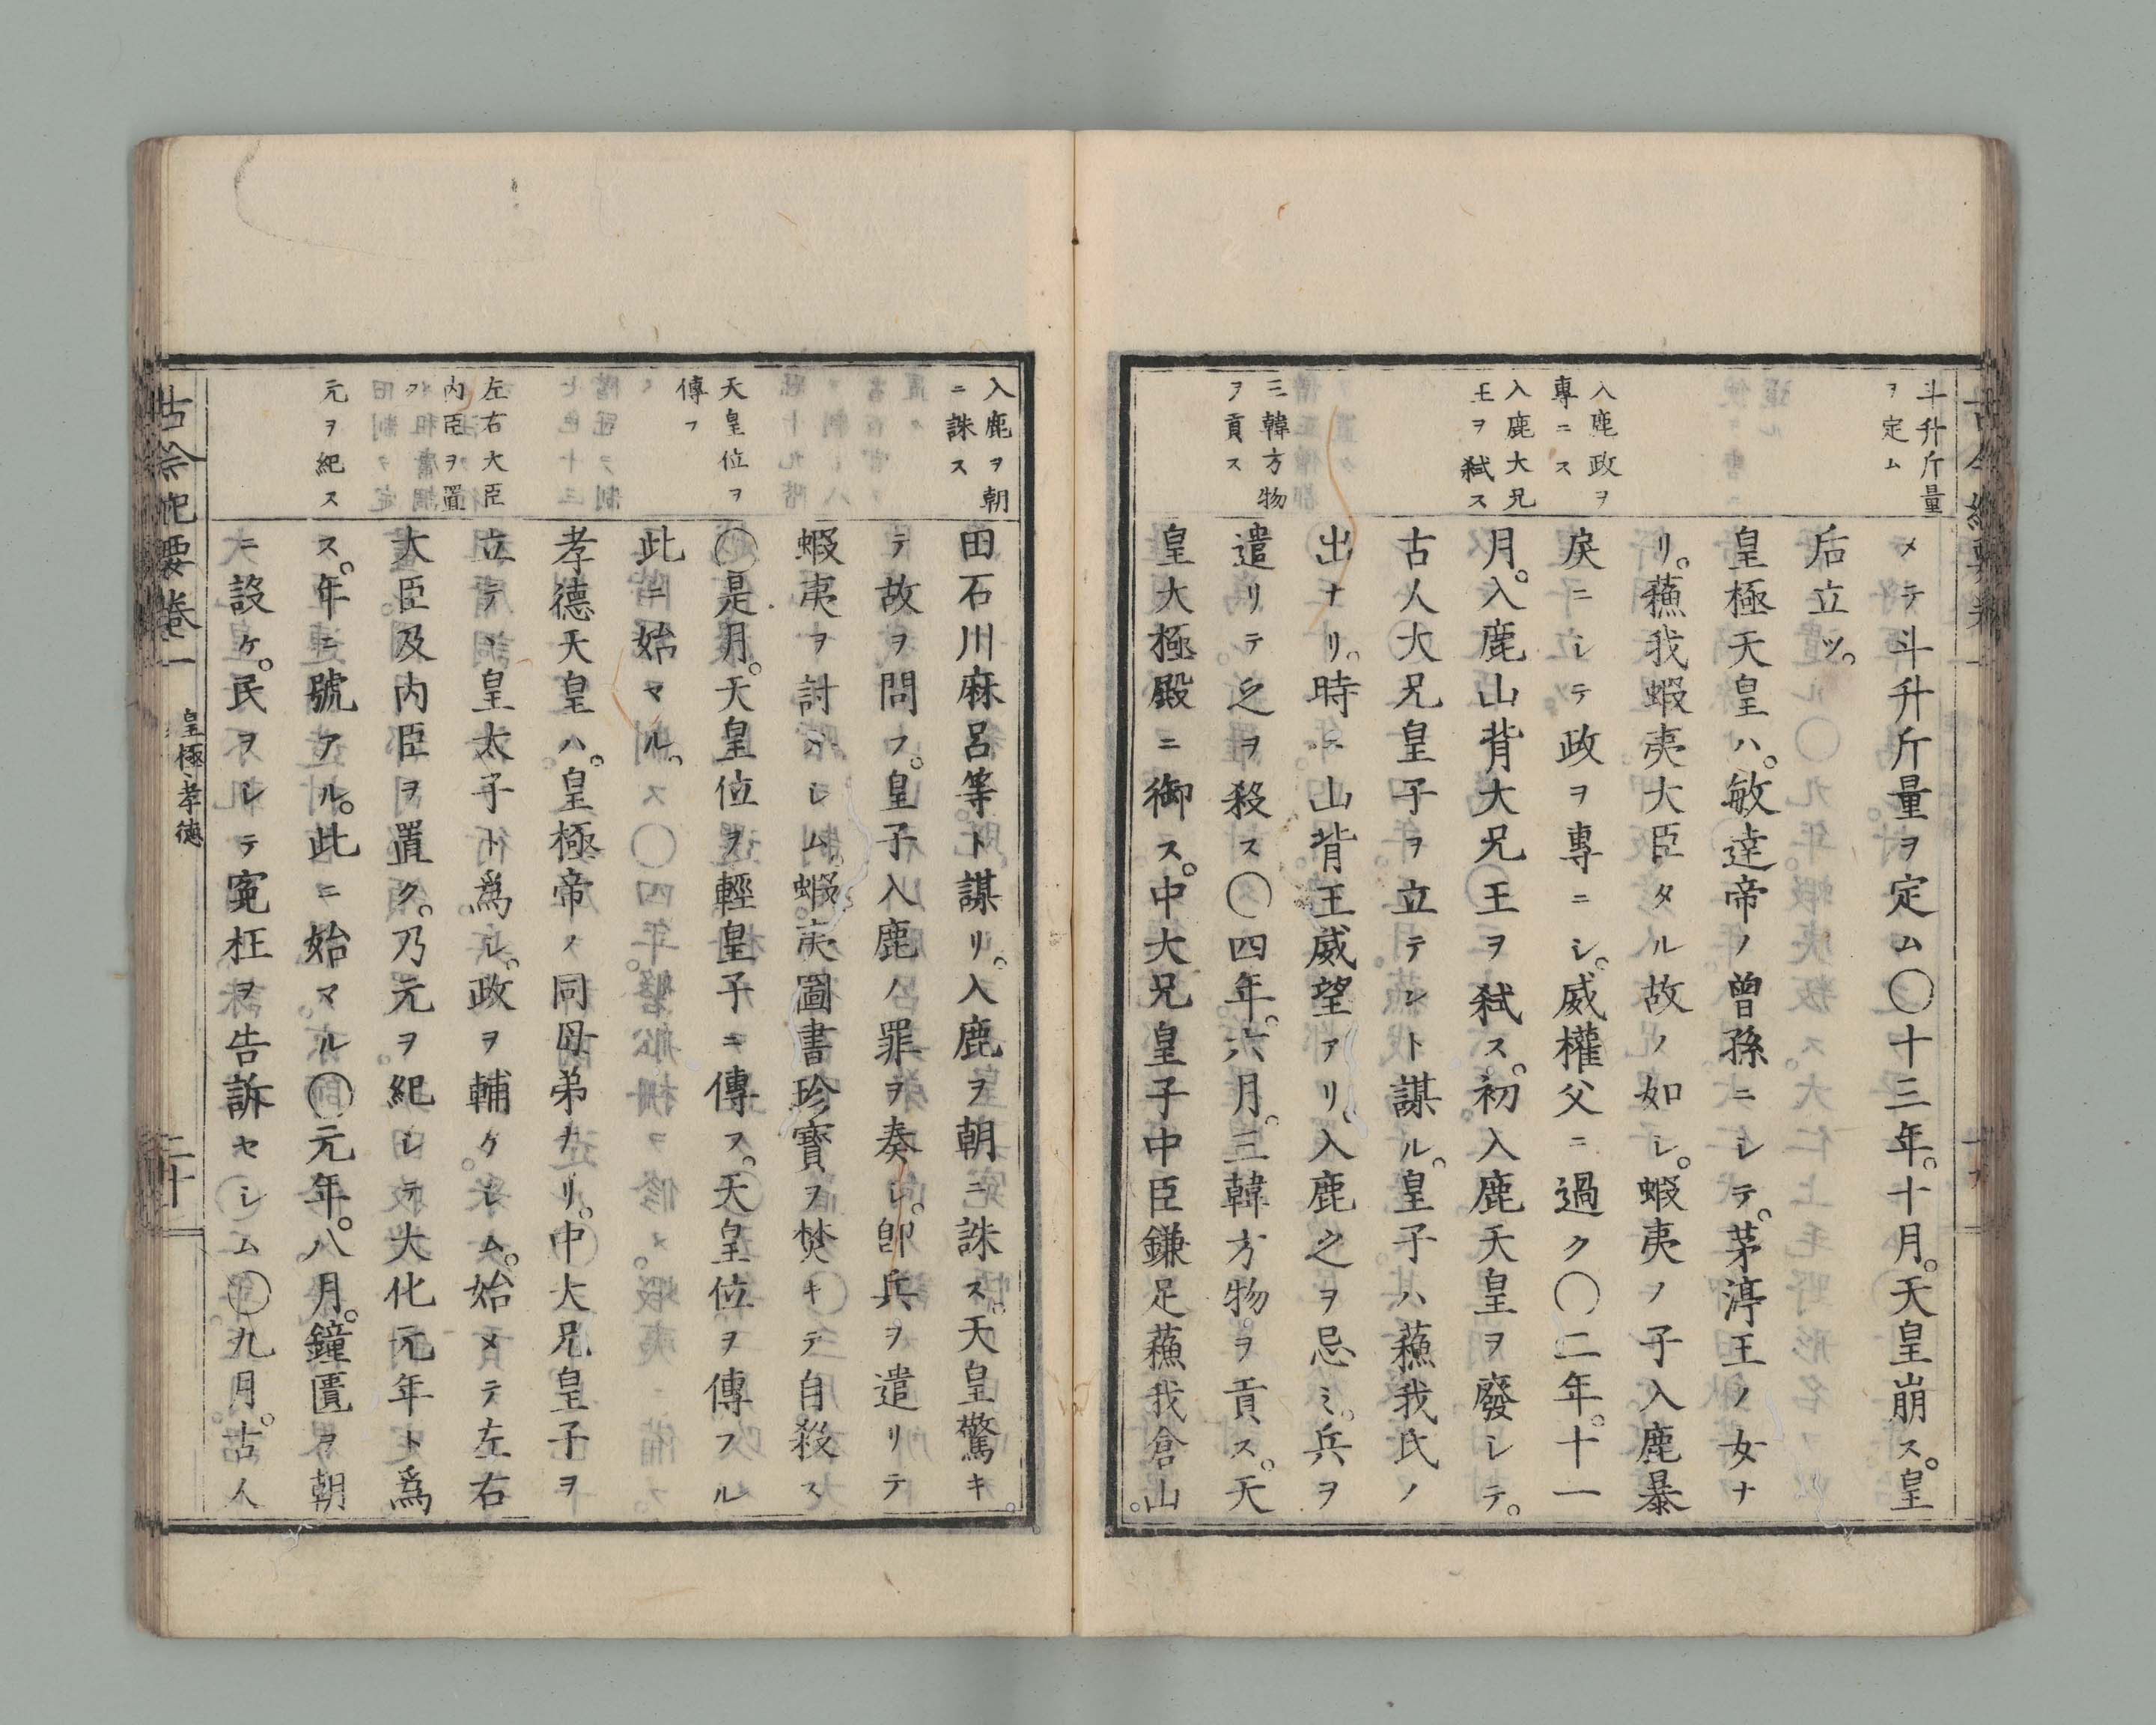 斗升斤量
ヲ定ム
入鹿政ヲ
專ニス
入鹿大兄
王ヲ弑ス
三韓方物
ヲ貢ス
メテ斗升斤量ヲ定ム〇十三年。十月。天皇崩ス。皇
后立ツ。
皇極天皇ハ。敏達帝ノ曾孫ニシテ。茅渟王ノ女ナ
リ。蘓我蝦夷大臣タル故ノ如シ。蝦夷ノ子入鹿暴
戾ニシテ政ヲ專ニシ。威權父ニ過ク〇二年。十一
月。入鹿山背大兄王ヲ弑ス。初入鹿天皇ヲ廢シテ。
古人大兄皇子ヲ立テント謀ル。皇子ハ蘓我氏ノ
出ナリ。時ニ山背王威望アリ。入鹿之ヲ忌ミ。兵ヲ
遣リテ之ヲ殺ス〇四年。六月。三韓方物ヲ貢ス。天
皇大極殿ニ御ス。中大兄皇子中臣鎌足蘓我倉山。
入鹿ヲ朝
ニ誅ス
天皇位ヲ
傳フ
左右大臣
內臣ヲ置
ク
元ヲ紀ス
田石川麻呂等ト謀リ。入鹿ヲ朝ニ誅ス。天皇驚キ。
テ故ヲ問フ。皇子入鹿ノ罪ヲ奏シ。卽兵ヲ遣リテ
蝦夷ヲ討タシム。蝦夷圖書珍寶ヲ焚キテ自殺ス
〇是月。天皇位ヲ輕皇子ニ傳フ。天皇位ヲ傳フル
此ニ始マル。
孝德天皇ハ。皇極帝ノ同母弟ナリ。中大兄皇子ヲ
立テヽ皇太子ト爲シ。政ヲ輔ケシム。始メテ左右
大臣及內臣ヲ置ク。乃元ヲ紀シテ大化元年ト爲
ス。年ニ號アル。此ニ始マル〇元年。八月。鐘匱ヲ朝
ニ設ケ。民ヲシテ寃枉ヲ告訴セシム〇九月。古人
古今紀要卷一
皇極孝德
二十